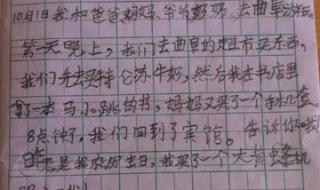 10月1日我和爸爸妈妈、爷爷奶奶去曲阜游玩。
第一天晚上,我们去曲阜的超市买东西,
我们先去买特仑苏牛奶,然后我去书店里
买了一本马小跳的书,妈妈又买了一个手机套。
8点钟了,我们回到了宾馆。告诉你哦!
是我农历生日,我买了一个大黄蜂玩